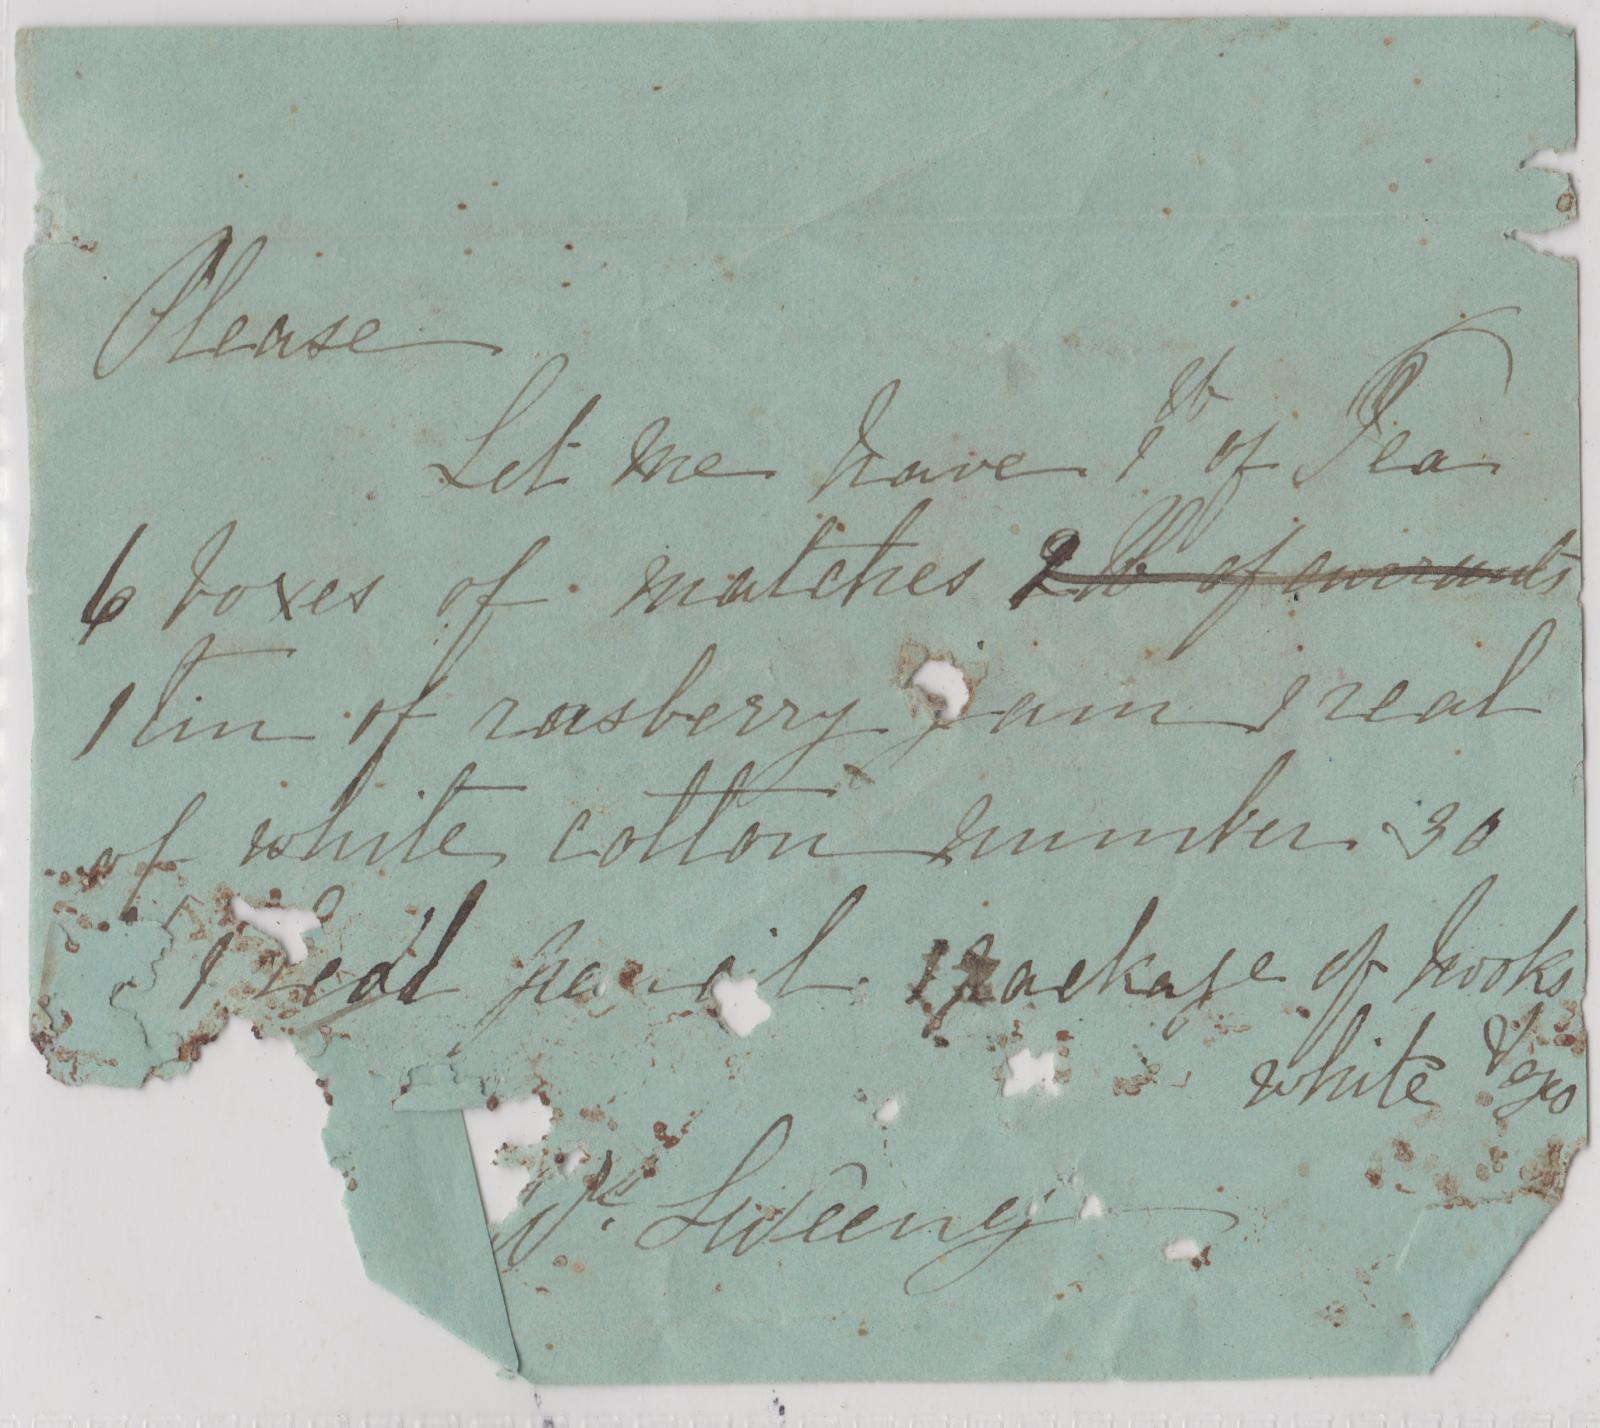 Please
Let me have 1 lb of Tea
6 boxes of matches 2 lb of currants
1 tin of rasberry jam 1 real
of white cotton number 30
1 lead pencil 1 package of hooks
white & eyes
Mc Sweeney